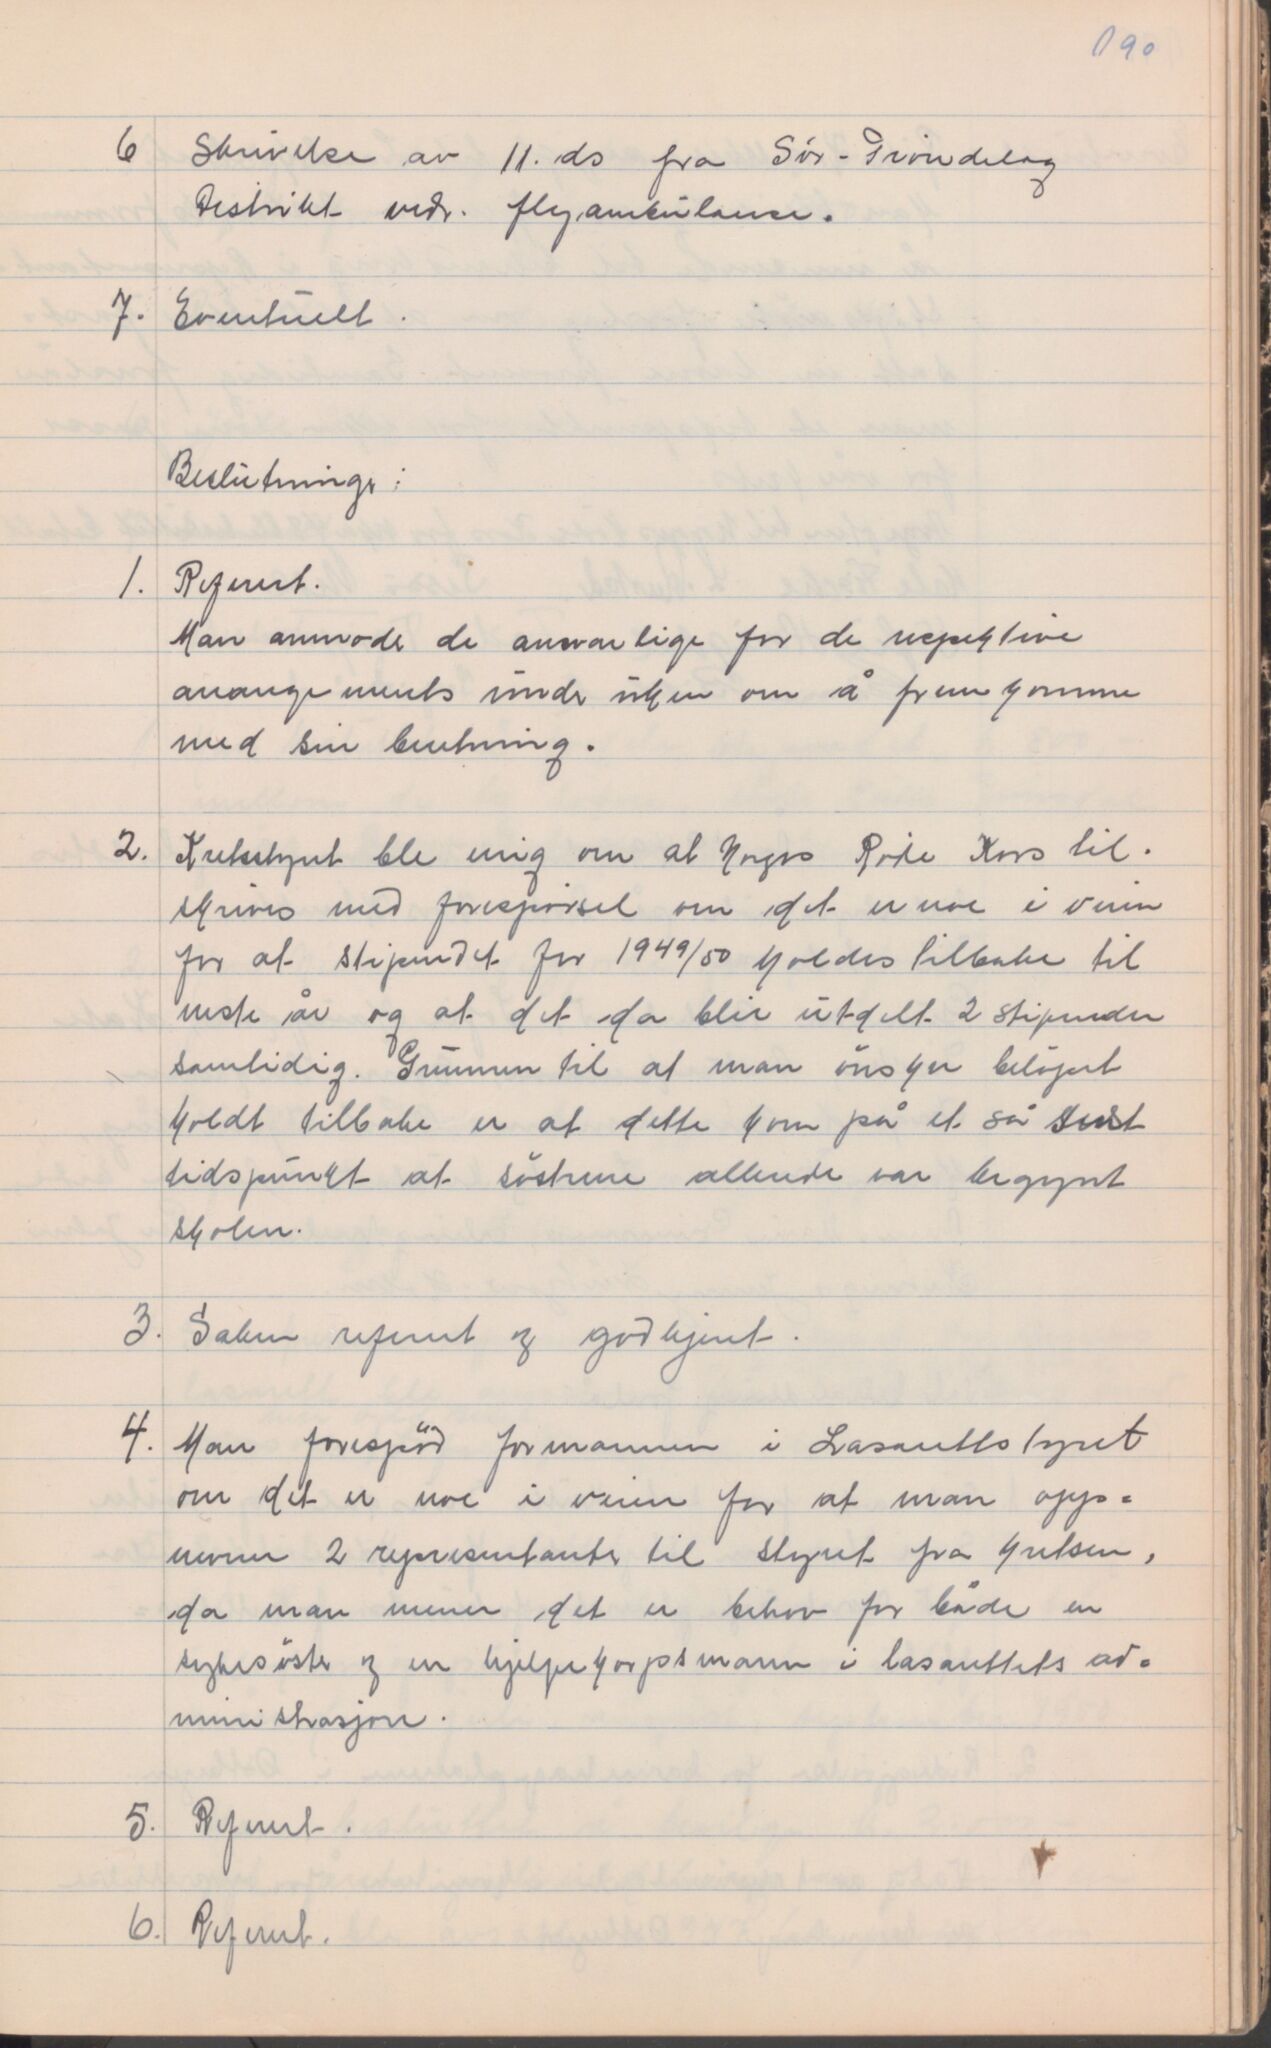 190
6 Skrivelse av 11. ds fra Sör-Tröndelag
Distrikt vedr. flyambulanse.
7. Eventuelt.
Beslutninger:
1. Referert.
Man anmoder de ansvarlige for de respektive
arrangements under uken om å fremkomme
med sin beretning.
2. Kretsstyret ble enig om at Norges Röde Kors til-
skrives med forespörsel om det er noe i veien
for at stipendet for 1949/50 holdes tilbake til
neste år og at det da blir utdelt 2 stipender
samtidig. Grunnen til at man önsker belöpet
holdt tilbake er at dette kom på et så sent
tidspunkt at söstrene allerede var begynt
skolen.
3. Saken referert og godkjent.
4. Man forespör formannen i Lasarettstyret
om det er noe i veien for at man opp-
nevner 2 representanter til styret fra kretsen,
da man mener det er behov for både en
sykesöster og en hjelpekorpsmann i lasarettets ad-
ministrasjon.
5. Referert.
6. Referert.